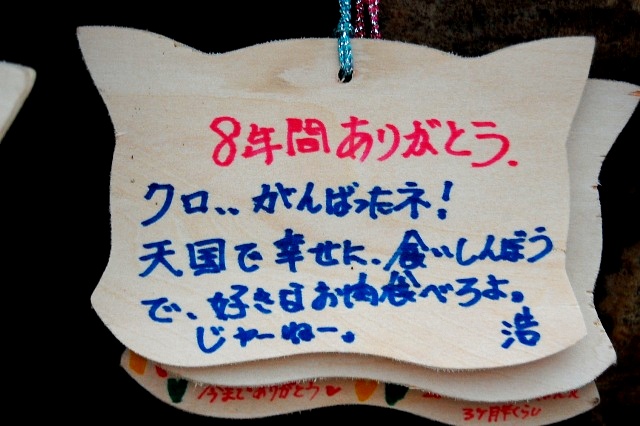 8年間ありがとう.
クロ、、がんばったネ!
天国で幸せに、食いしんぼう
で、好きなお肉食べろよ。
じゃーねー。 浩
今までありがとう
3ヶ月半くらい